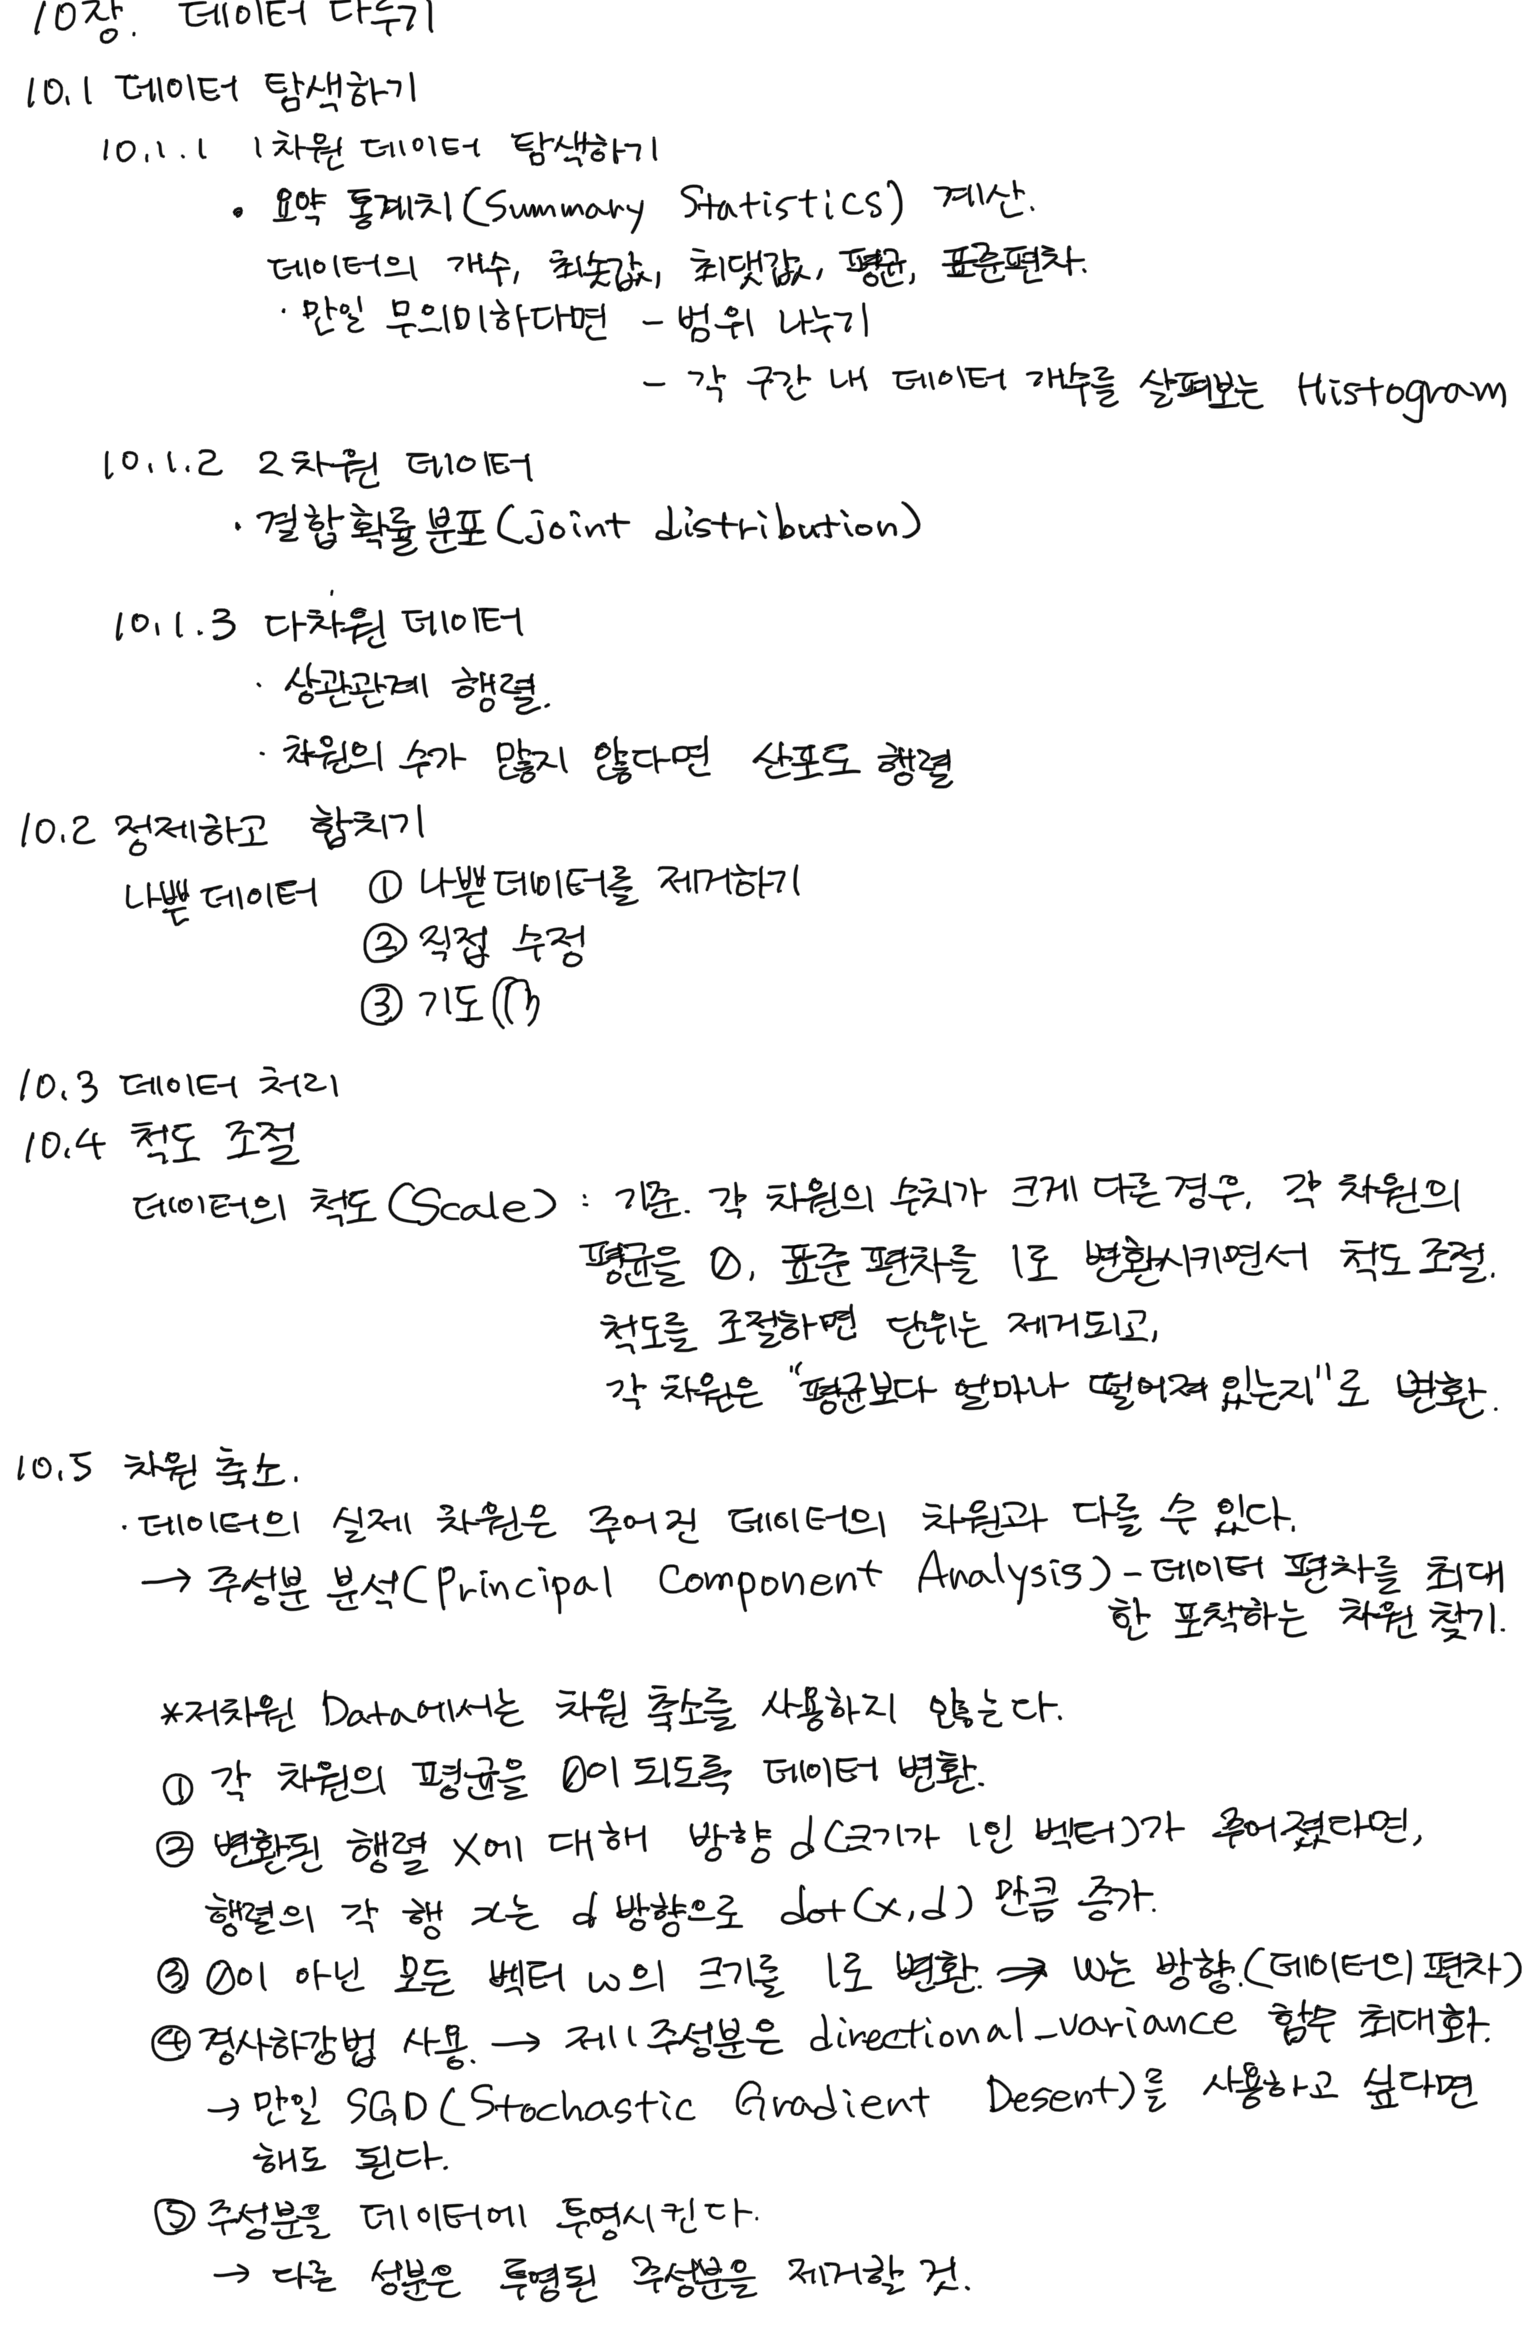 10장. 데이터 다루기
10.1 데이터 탐색하기
10.1.1 1차원 데이터 탐색하기
• 요약 통계치(Summary Statistics) 계산.
데이터의 개수, 최솟값, 최댓값, 평균, 표준편차.
· 만일 무의미하다면 - 범위 나누기
- 각 구간 내 데이터 개수를 살펴보는 Histogram
10.1.2 2차원 데이터
· 결합확률분포(joint distribution)
10.1.3 다차원 데이터
· 상관관계 행렬.
· 차원의 수가 많지 않다면 산포도 행렬
10.2 정제하고 합치기
나쁜 데이터 ① 나쁜데이터를 제거하기
② 직접 수정
③ 기도
10.3 데이터 처리
10.4 척도 조절
데이터의 척도(Scale) : 기준. 각 차원의 수치가 크게 다른 경우, 각 차원의
평균을 0, 표준편차를 1로 변환시키면서 척도 조절.
척도를 조절하면 단위는 제거되고,
각 차원은 "평균보다 얼마나 떨어져 있는지"로 변환.
10.5 차원 축소.
· 데이터의 실제 차원은 주어진 데이터의 차원과 다를 수 있다.
→ 주성분 분석(Principal Component Analysis) - 데이터 편차를 최대
한 포착하는 차원 찾기.
*저차원 Data에서는 차원 축소를 사용하지 않는다.
① 각 차원의 평균을 0이 되도록 데이터 변환.
② 변환된 행렬 X에 대해 방향 d(크기가 1인 벡터)가 주어졌다면,
행렬의 각 행 x는 d 방향으로 dot(x,d) 만큼 증가.
③ 0이 아닌 모든 벡터 w의 크기를 1로 변환. → w는 방향.(데이터의 편차)
④ 경사하강법 사용. → 제1 주성분은 directional_variance 함수 최대화.
→ 만일 SGD(Stochastic Gradient Desent)를 사용하고 싶다면
해도 된다.
⑤ 주성분을 데이터에 투영시킨다.
→ 다른 성분은 투영된 주성분을 제거할 것.